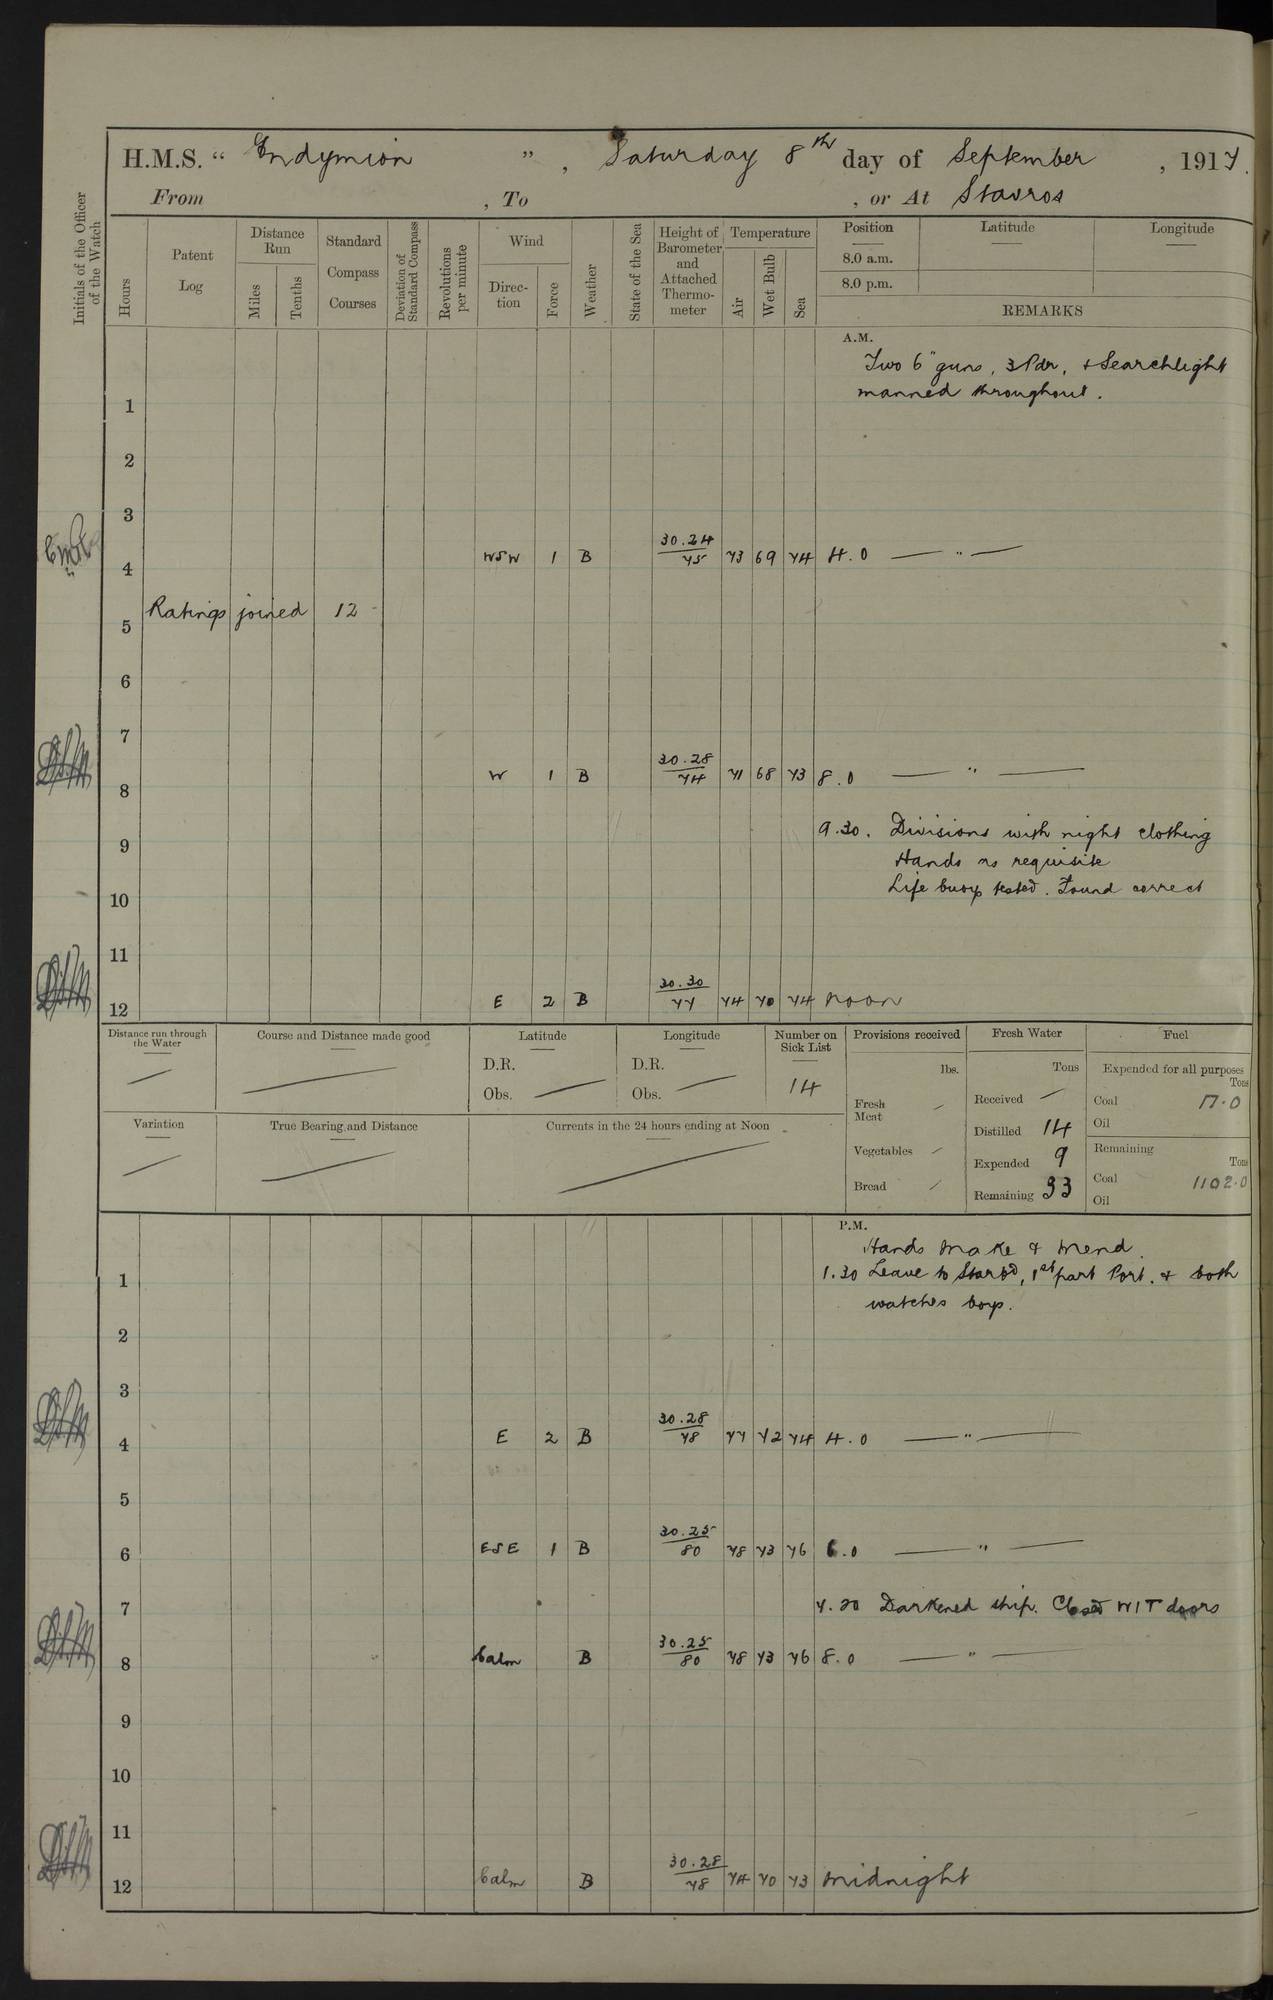 H.M.S. “ Endymion ” , Saturday 8th day of September , 1917.
From , To , or At Stavros
Initials of the Officer of the Watch
Hours
Patent Log
Distance Run
Miles
Tenths
Standard Compass Courses
Deviation of Standard Compass
Revolutions per minute
Wind
Direction
Force
Weather
State of the Sea
Height of Barometer and Attached Thermometer
Temperature
Air
Wet Bulb
Sea
Position Latitude Longitude
8.0 a.m.
8.0 p.m.
REMARKS
A.M.
Two 6" guns, 3 Pdr, + Searchlight
manned throughout.
1
2
3
4 WSW 1 B 30.24 75 73 69 74 4.0 — " —
5 Ratings joined 12
6
7
8 W 1 B 30.28 74 71 68 73 8.0 — " —
9 9.30. Divisions with night clothing
Hands as requisite
Life buoys tested. Found correct
10
11
12 E 2 B 30.30 77 74 70 74 noon
Distance run through the Water
Course and Distance made good
Latitude
D.R.
Obs.
Longitude
D.R.
Obs.
Number on Sick List
14
Provisions received
lbs.
Fresh Meat
Vegetables
Bread
Fresh Water
Tons
Received
Distilled 14
Expended 9
Remaining 33
Fuel
Expended for all purposes
Tons
Coal 17.0
Oil
Remaining
Tons
Coal 1102.0
Oil
Variation
True Bearing and Distance
Currents in the 24 hours ending at Noon
P.M.
Hands make & mend.
1 1.30 Leave to Starbd, 1st part Port. & both
watches boys.
2
3
4 E 2 B 30.28 78 77 72 74 4.0 — " —
5
6 ESE 1 B 30.25 80 78 73 76 6.0 — " —
7 7.20 Darkened ship. Closed W/T doors
8 Calm B 30.25 80 78 73 76 8.0 — " —
9
10
11
12 Calm B 30.28 78 74 70 73 midnight